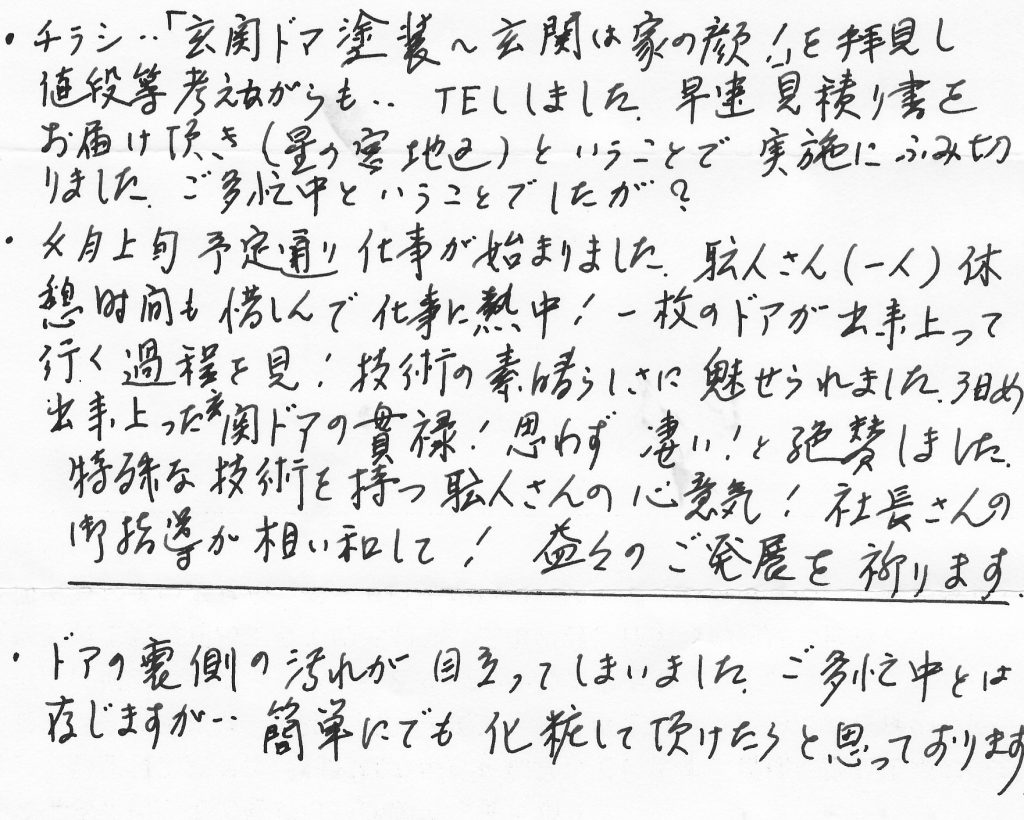 ・チラシ‥「玄関ドア塗装～玄関は家の顔！」を拝見し
値段等考えながらも‥ TELしました。早速見積り書を
お届け頂き（星の窓地区）ということで実施にふみ切
りました。ご多忙中ということでしたが？
・月上旬 予定通り仕事が始まりました。職人さん（一人）休
憩時间も惜しんで仕事に熱中！一枚のドアが出来上って
行く過程を見！技術の素晴らしさに魅せられました。3日め
出来上った玄関ドアの貫禄！思わず凄い！と絶賛しました。
特殊な技術を持つ職人さんの心意気！社長さんの
御指導が相い和して！益々のご発展を祈ります。
・ドアの裏側の汚れが目立ってしまいました。ご多忙中とは
存じますが‥簡単にでも化粧して頂けたらと思っております